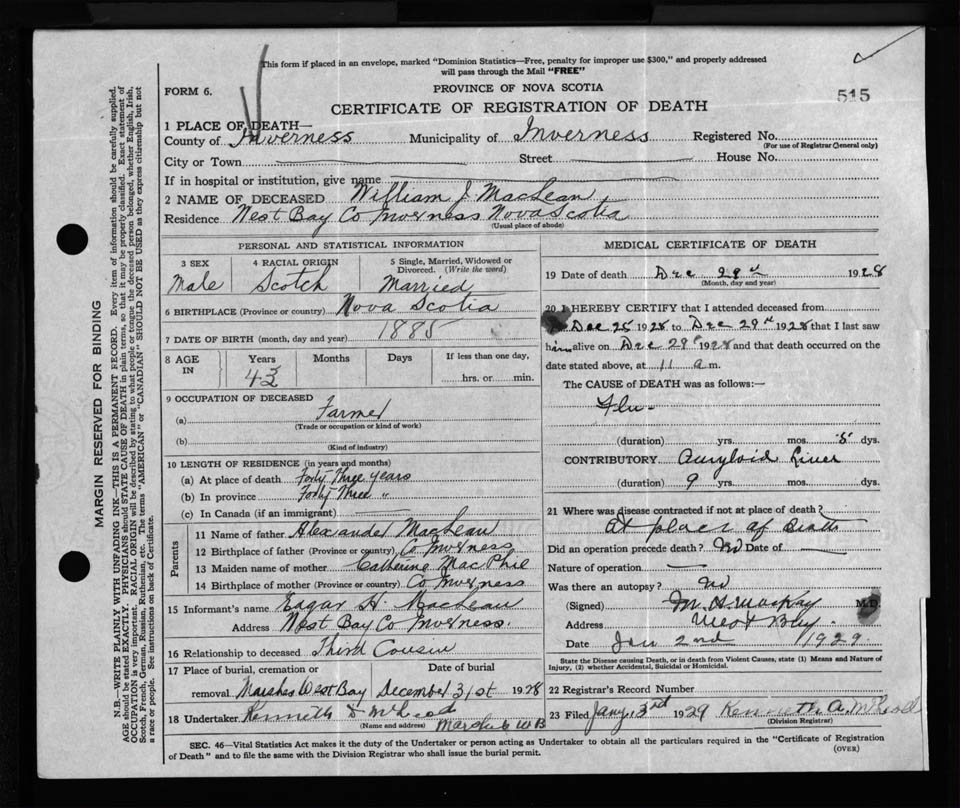 This form if placed in an envelope, marked "Dominion Statistics—Free, penalty for improper use $300," and properly addressed
will pass through the Mail "FREE"
FORM 6.
PROVINCE OF NOVA SCOTIA
515
CERTIFICATE OF REGISTRATION OF DEATH
1 PLACE OF DEATH—
County of Inverness Municipality of Inverness Registered No.
(For use of Registrar General only)
City or Town Street House No.
If in hospital or institution, give name
2 NAME OF DECEASED William J. MacLean
Residence West Bay Co Inverness Nova Scotia
(Usual place of abode)
PERSONAL AND STATISTICAL INFORMATION
3 SEX 4 RACIAL ORIGIN 5 Single, Married, Widowed or
Divorced. (Write the word)
Male Scotch Married
6 BIRTHPLACE (Province or country) Nova Scotia
7 DATE OF BIRTH (month, day and year) 1885
8 AGE IN Years Months Days If less than one day,
43 hrs. or min.
9 OCCUPATION OF DECEASED
(a) Farmer
(Trade or occupation or kind of work)
(b)
(Kind of industry)
10 LENGTH OF RESIDENCE (in years and months)
(a) At place of death Forty Three years
(b) In province Forty Three "
(c) In Canada (if an immigrant)
Parents
11 Name of father Alexander MacLean
12 Birthplace of father (Province or country) Co Inverness
13 Maiden name of mother Catherine MacPhie
14 Birthplace of mother (Province or country) Co Inverness
15 Informant's name Edgar H. MacLean
Address West Bay Co Inverness.
16 Relationship to deceased Third Cousin
17 Place of burial, cremation or Date of burial
removal Marshes West Bay December 31st 1928
18 Undertaker Kenneth D McLeod
(Name and address) Marshes W B
MEDICAL CERTIFICATE OF DEATH
19 Date of death Dec 29th 1928
(Month, day and year)
20 I HEREBY CERTIFY that I attended deceased from
Dec 25 1928 to Dec 29th 1928 that I last saw
him alive on Dec 29th 1928 and that death occurred on the
date stated above, at 11 a m.
The CAUSE of DEATH was as follows:—
Flu
(duration) yrs. mos. 5 dys.
CONTRIBUTORY Amyloid Liver
(duration) 9 yrs. mos. dys.
21 Where was disease contracted if not at place of death?
At place of Death
Did an operation precede death? No Date of
Nature of operation
Was there an autopsy? No
(Signed) M. A. MacKay M.D.
Address West Bay
Date Jan 2nd 1929
State the Disease causing Death, or in death from Violent Causes, state (1) Means and Nature of
Injury, (2) whether Accidental, Suicidal or Homicidal.
22 Registrar's Record Number
23 Filed Jany. 3rd 1929 Kenneth A. McLeod
(Division Registrar)
SEC. 46—Vital Statistics Act makes it the duty of the Undertaker or person acting as Undertaker to obtain all the particulars required in the "Certificate of Registration
of Death" and to file the same with the Division Registrar who shall issue the burial permit.
(OVER)
MARGIN RESERVED FOR BINDING
N.B.—WRITE PLAINLY WITH UNFADING INK—THIS IS A PERMANENT RECORD. Every item of information should be carefully supplied.
AGE should be stated EXACTLY. PHYSICIANS should STATE CAUSE OF DEATH in plain terms, so that it may be properly classified. Exact statement of
OCCUPATION is very important. RACIAL ORIGIN will be described by stating to what people or tongue the deceased person belonged, whether English, Irish,
Scotch, French, German, Russian, Ruthenian, etc. The terms "AMERICAN" or "CANADIAN" SHOULD NOT BE USED as they express citizenship but not
a race or people. See instructions on back of Certificate.